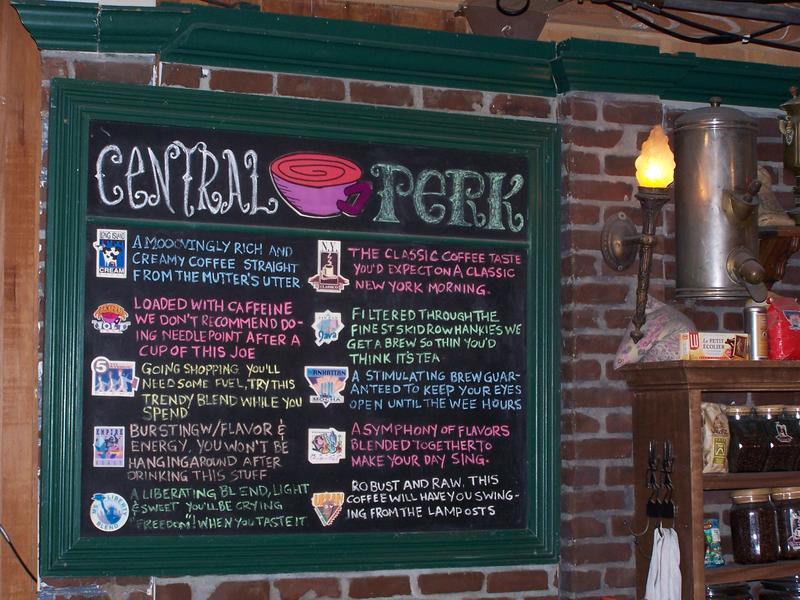 CENTRAL PERK
LONG ISLAND
CREAM
A MOOOVINGLY RICH AND
CREAMY COFFEE STRAIGHT
FROM THE MUTTER'S UTTER
JOLT
LOADED WITH CAFFEINE
WE DON'T RECOMMEND DO-
ING NEEDLEPOINT AFTER A
CUP OF THIS JOE
5
GOING SHOPPING YOU'LL
NEED SOME FUEL, TRY THIS
TRENDY BLEND WHILE YOU
SPEND
EMPIRE
ROAST
BURSTING W/FLAVOR &
ENERGY, YOU WON'T BE
HANGING AROUND AFTER
DRINKING THIS STUFF
LIBERTY
BLEND
A LIBERATING BLEND, LIGHT
& SWEET YOU'LL BE CRYING
"FREEDOM!" WHEN YOU TASTE IT
N.Y.
CLASSICO
THE CLASSIC COFFEE TASTE
YOU'D EXPECT ON A CLASSIC
NEW YORK MORNING.
Java
FILTERED THROUGH THE
FINEST SKID ROW HANKIES WE
GET A BREW SO THIN YOU'D
THINK IT'S TEA
MANHATTAN
MOCHA
A STIMULATING BREW GUAR-
ANTEED TO KEEP YOUR EYES
OPEN UNTIL THE WEE HOURS
A SYMPHONY OF FLAVORS
BLENDED TOGETHER TO
MAKE YOUR DAY SING.
URBAN
ROBUST AND RAW, THIS
COFFEE WILL HAVE YOU SWING-
ING FROM THE LAMPOSTS
LU
LE PETIT
ÉCOLIER